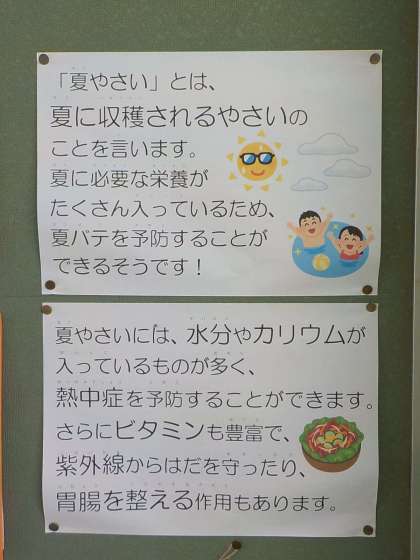 「夏やさい」とは、
夏に収穫されるやさいの
ことを言います。
夏に必要な栄養が
たくさん入っているため、
夏バテを予防することが
できるそうです!
夏やさいには、水分やカリウムが
入っているものが多く、
熱中症を予防することができます。
さらにビタミンも豊富で、
紫外線からはだを守ったり、
胃腸を整える作用もあります。